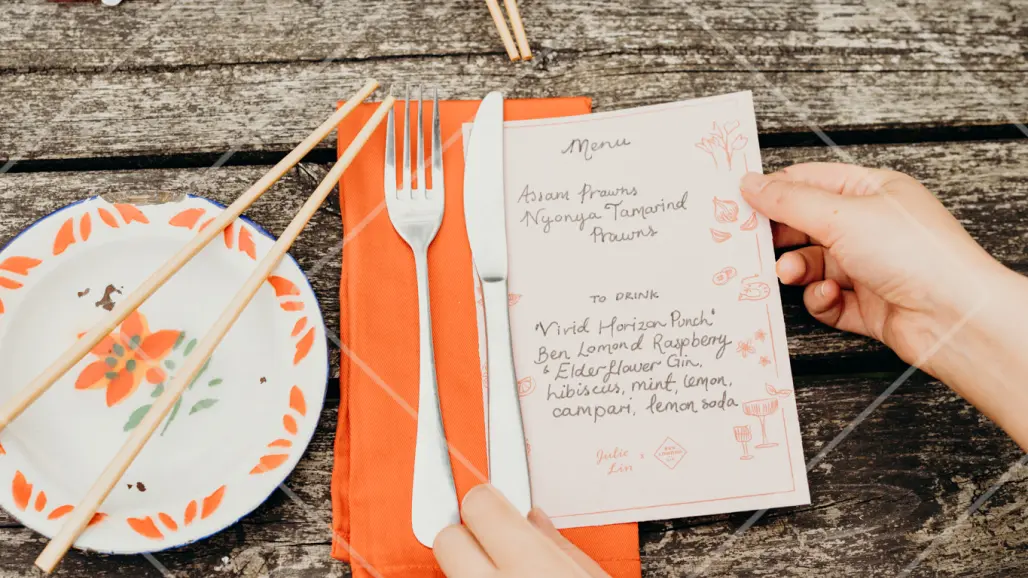 Menu
Assam Prawns
Nyonya Tamarind
Prawns
TO DRINK
"Vivid Horizon Punch"
Ben Lomond Raspberry
& Elderflower Gin,
hibiscus, mint, lemon,
campari, lemon soda
Julie
Lin
x
BEN
LOMOND